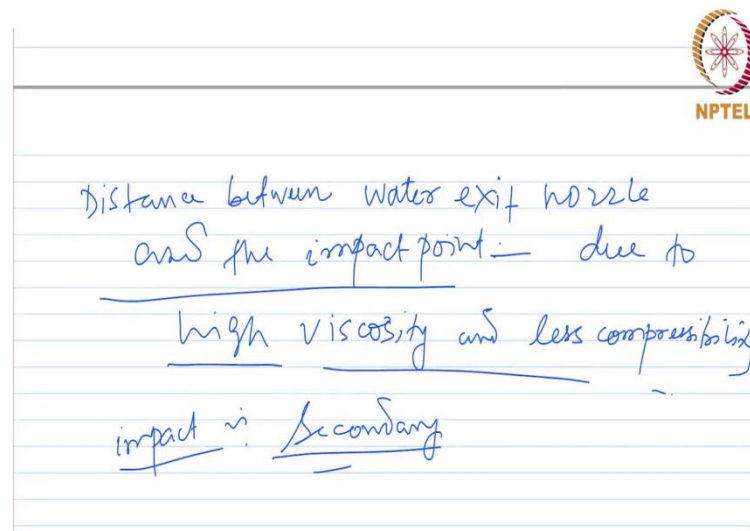 NPTEL
Distance between water exit nozzle
and the impact point – due to
high viscosity and less compressibility
impact is secondary